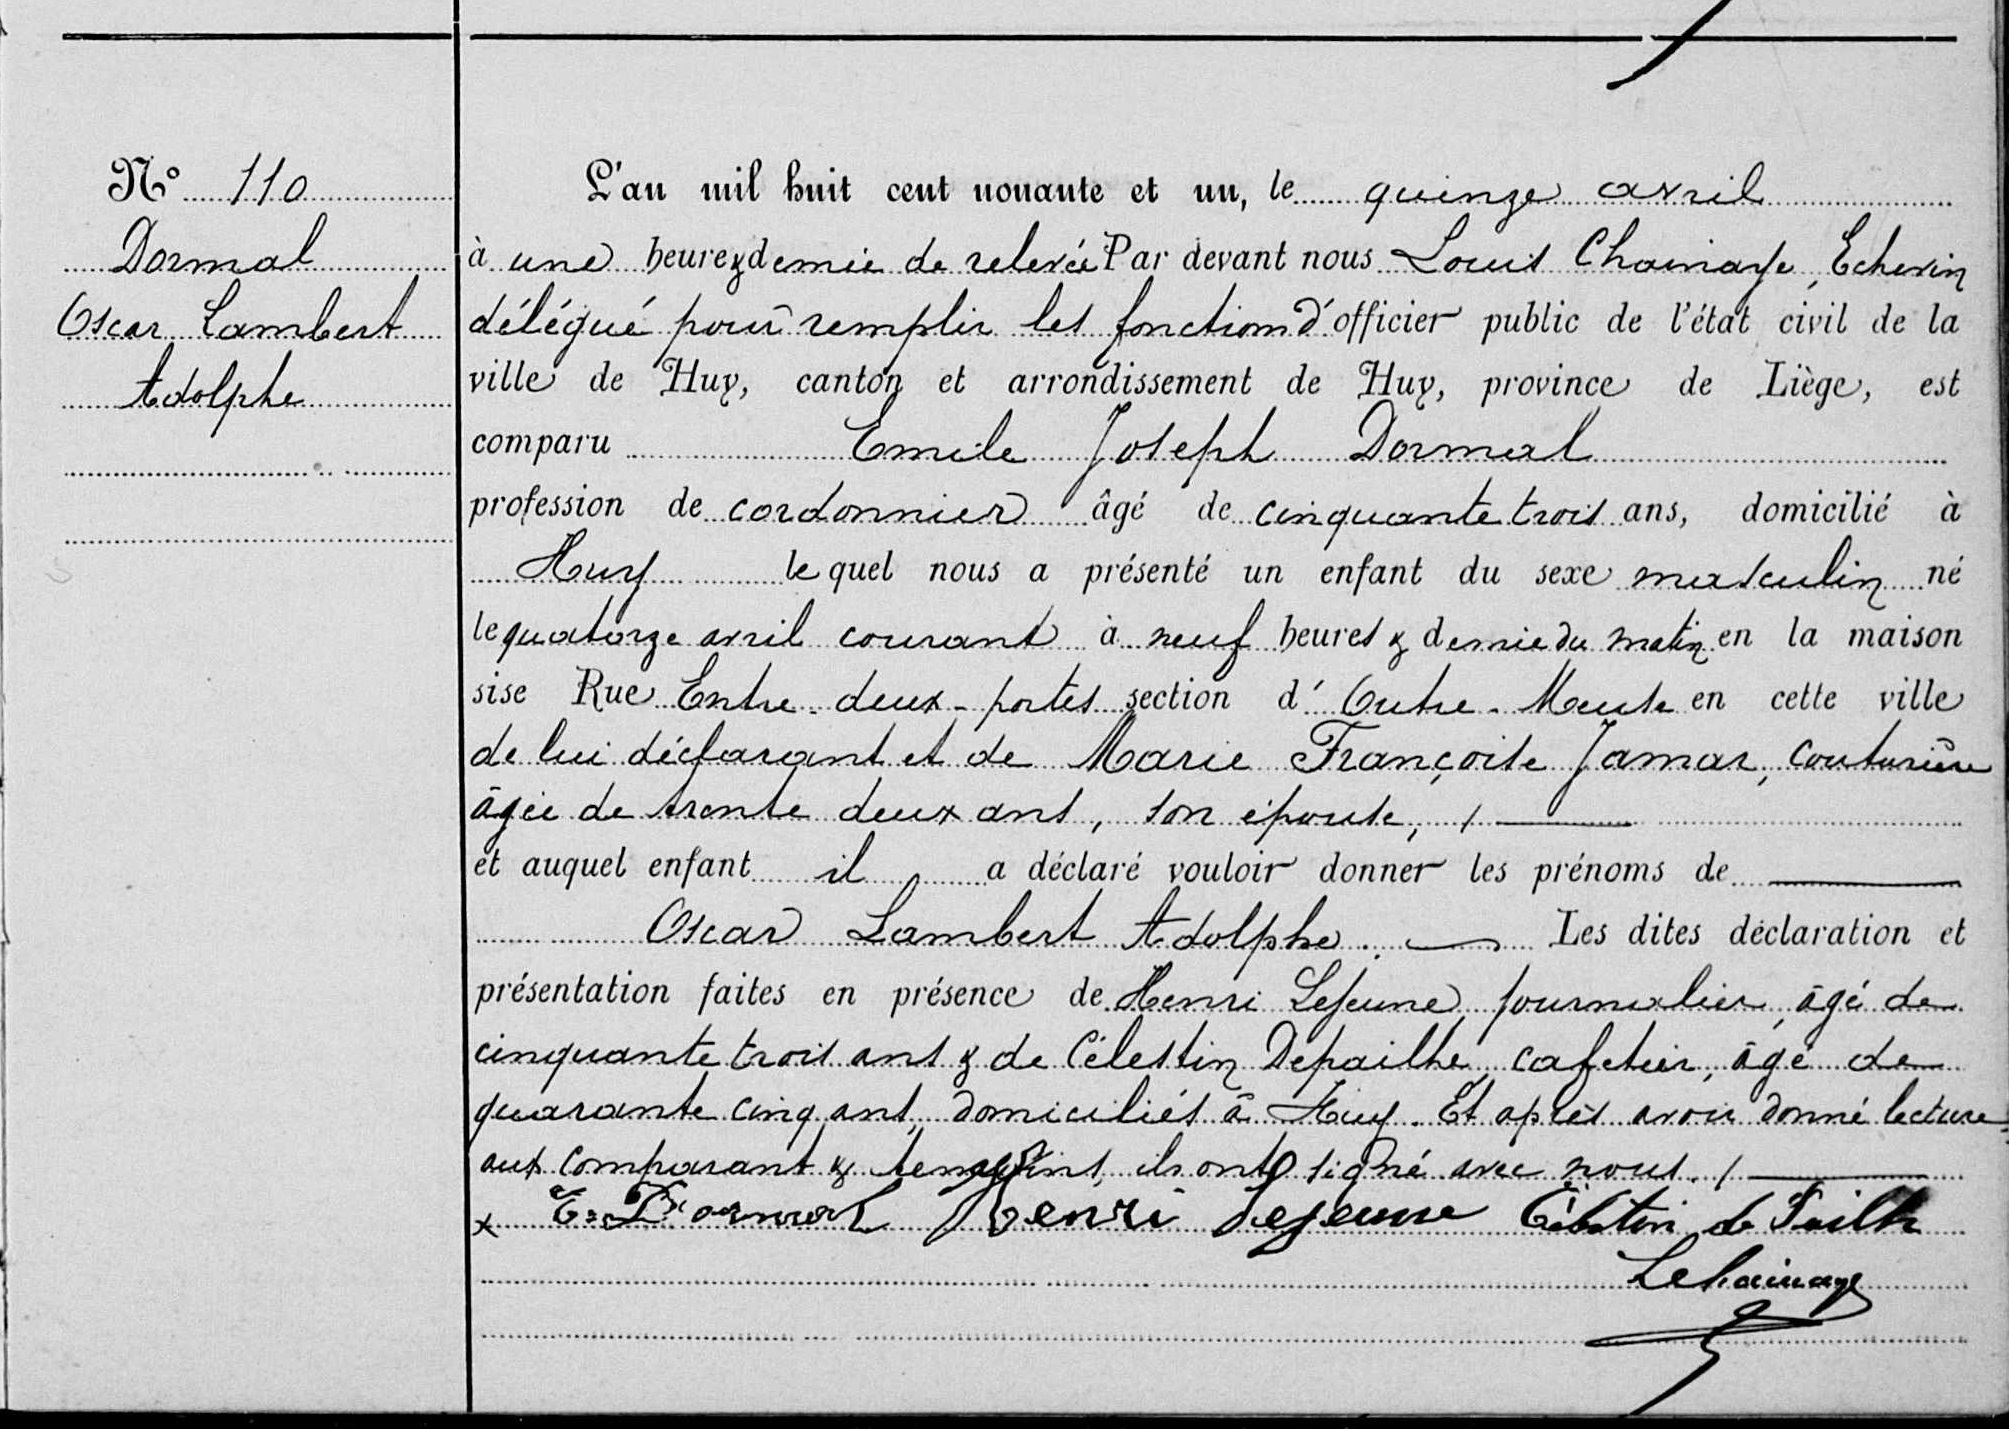 N° 110
Dormal
Oscar Lambert
Adolphe
L'an mil huit cent nonante et un, le quinze avril
à une heure & demie de relevée Par devant nous Louis Chainaye, Echevin
délégué pour remplir les fonctions d'officier public de l'état civil de la
ville de Huy, canton et arrondissement de Huy, province de Liège, est
comparu Emile Joseph Dormal
profession de cordonnier âgé de cinquante trois ans, domicilié à
Huy lequel nous a présenté un enfant du sexe masculin né
le quatorze avril courant à neuf heures & demie du matin en la maison
sise Rue Entre-deux-portes section d'Outre-Meuse en cette ville
de lui déclarant et de Marie Françoise Jamar, couturière
âgée de trente deux ans, son épouse, /
et auquel enfant il a déclaré vouloir donner les prénoms de
Oscar Lambert Adolphe. Les dites déclaration et
présentation faites en présence de Henri Lejeune, journalier, âgé de
cinquante trois ans & de Célestin Depailhe, cafetier, âgé de
quarante cinq ans, domiciliés à Huy. Et après avoir donné lecture
aux comparant & témoins, ils ont signé avec nous. /
x E. Dormal Henri Lejeune Célestin de Pailhe
LChainaye